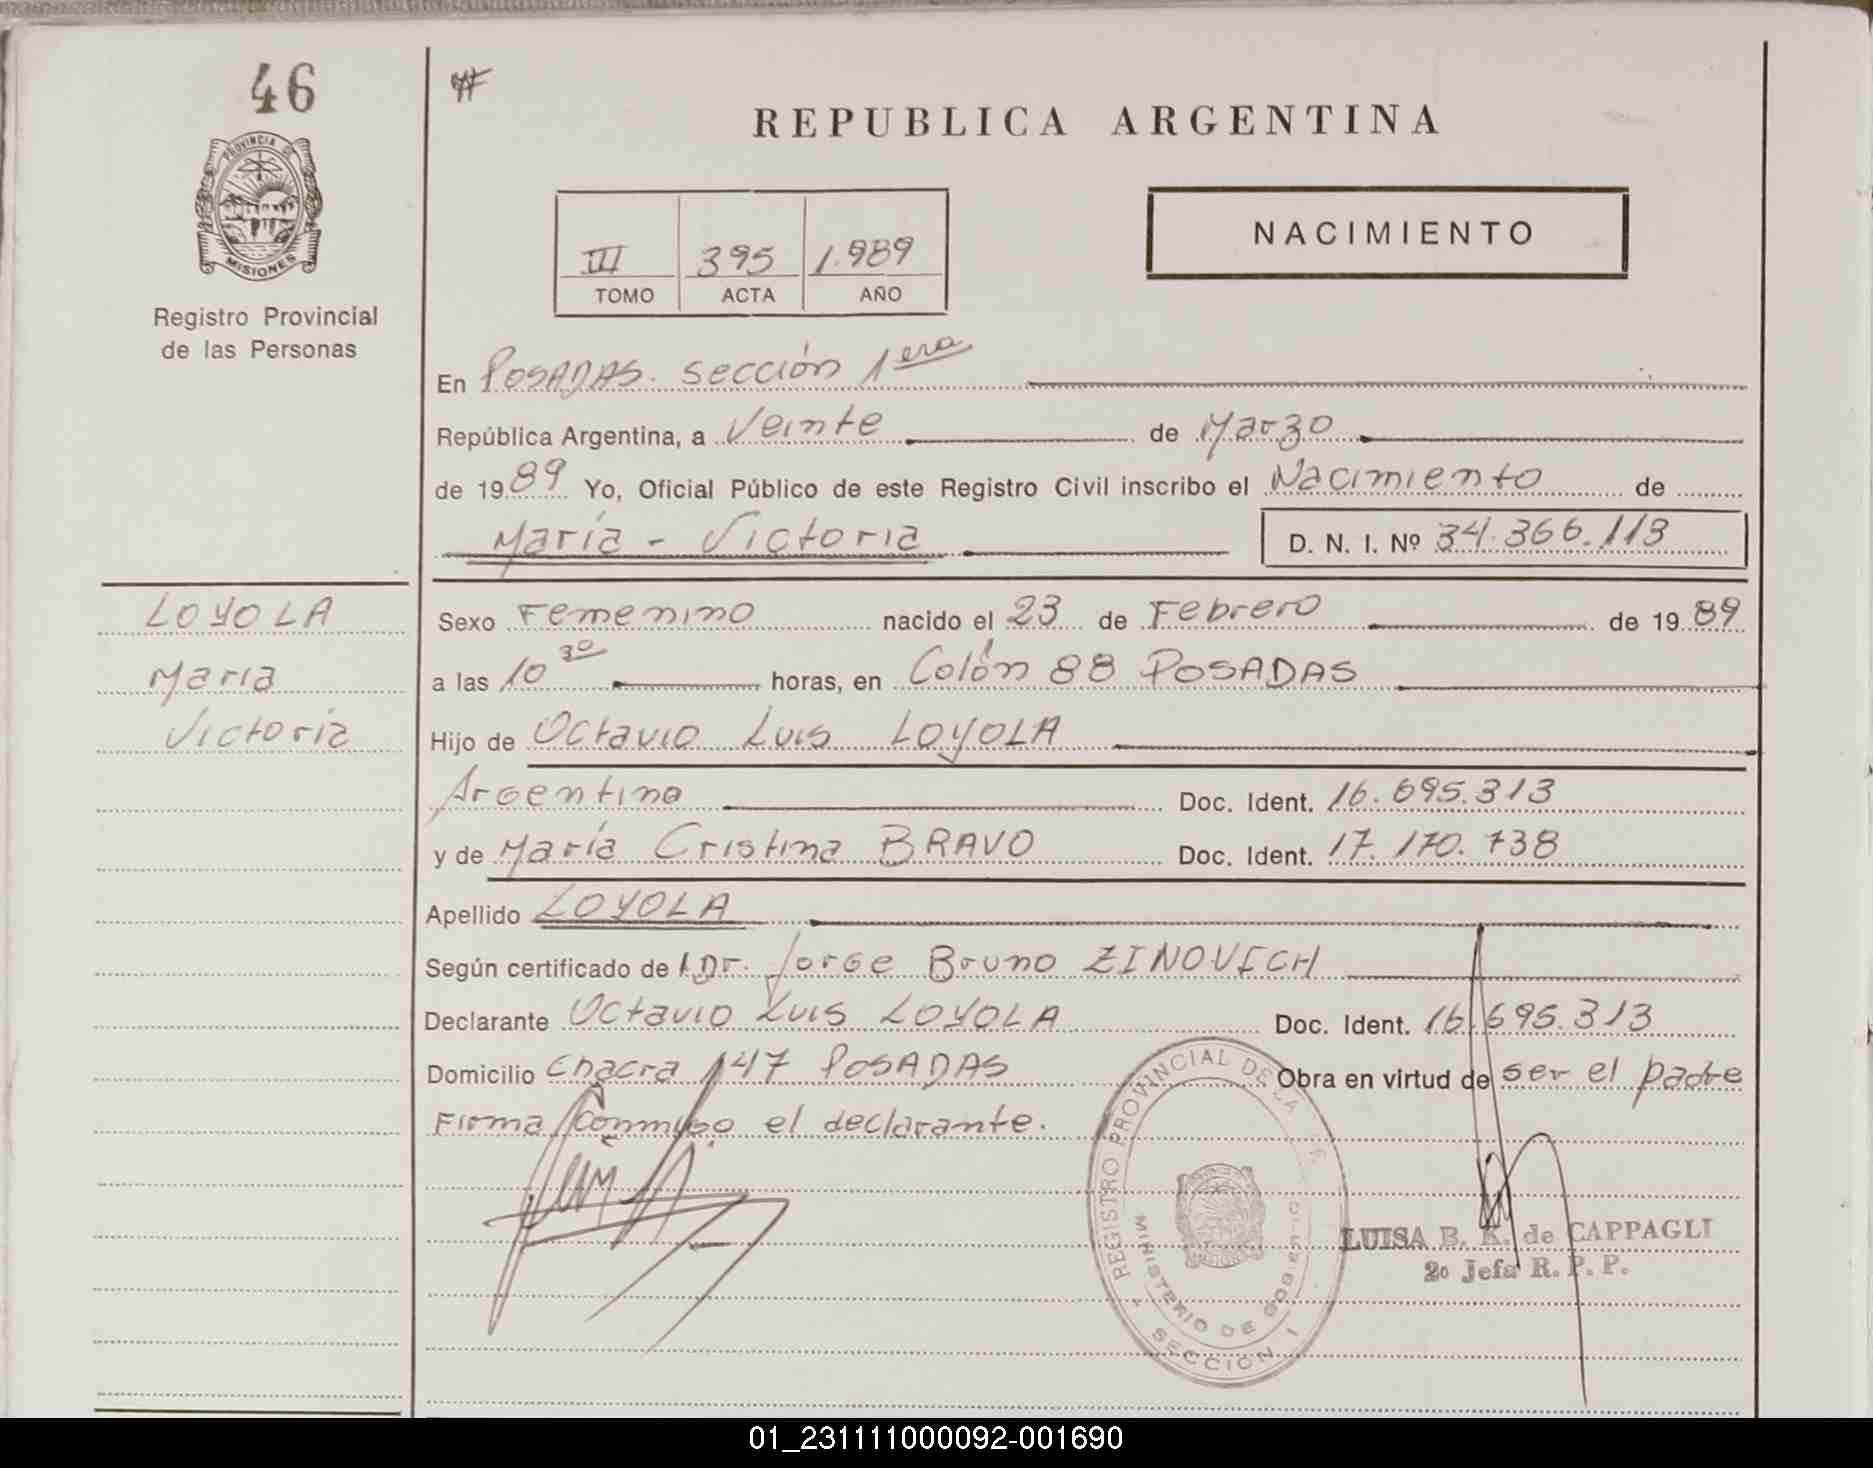 46
REPUBLICA ARGENTINA
PROVINCIA DE
MISIONES
Registro Provincial
de las Personas
III 395 1.989
TOMO ACTA AÑO
NACIMIENTO
En POSADAS. sección 1era
República Argentina, a Veinte de Marzo
de 1989 Yo, Oficial Público de este Registro Civil inscribo el Nacimiento de
María - Victoria D. N. I. Nº 34.366.113
LOYOLA
Maria
Victoria
Sexo Femenino nacido el 23 de Febrero de 1989
a las 10 30 horas, en Colón 88 POSADAS
Hijo de Octavio Luis LOYOLA
Argentino Doc. Ident. 16.695.313
y de María Cristina BRAVO Doc. Ident. 17.170.738
Apellido LOYOLA
Según certificado de l Dr. Jorge Bruno ZINOVICH
Declarante Octavio Luis LOYOLA Doc. Ident. 16.695.313
Domicilio Chacra 147 POSADAS Obra en virtud de ser el padre
Firma Conmigo el declarante.
REGISTRO PROVINCIAL DE LA
MINISTERIO DE GOBIERNO
SECCION 1
LUISA B. K. de CAPPAGLI
2º Jefa R. P. P.
01_231111000092-001690